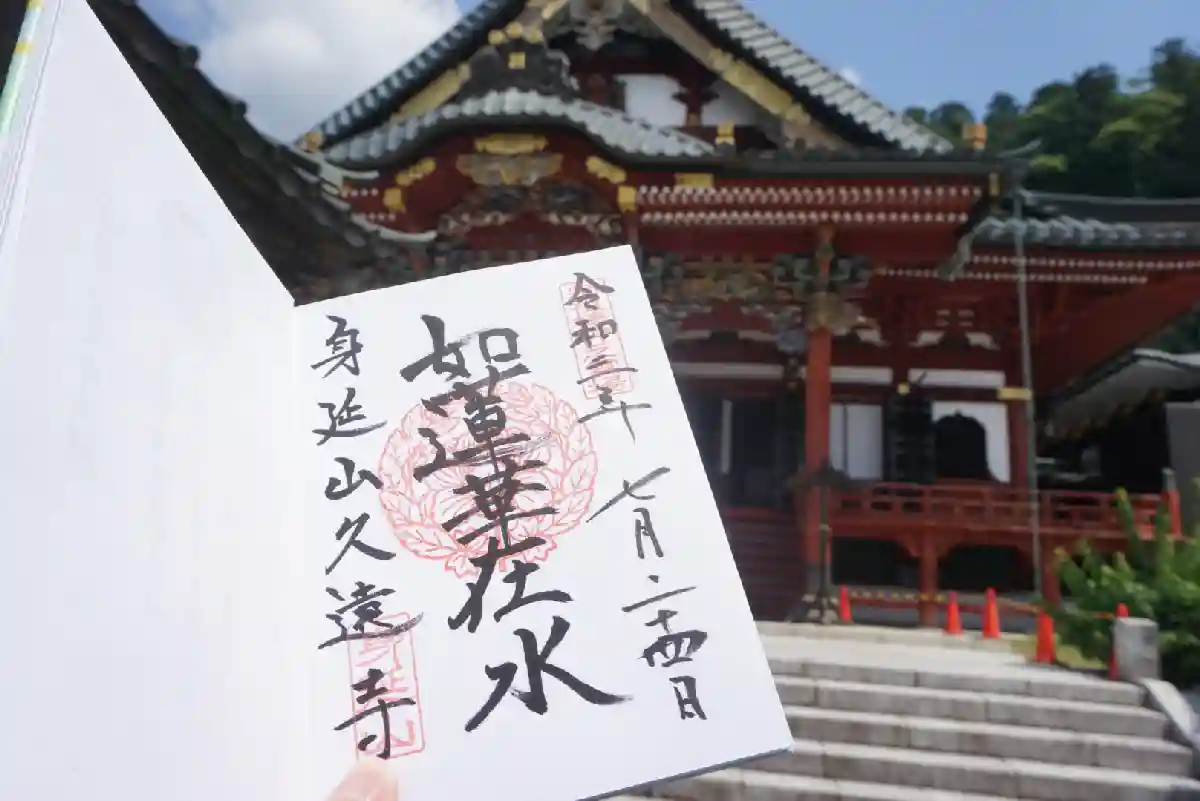 令和三年 七月二十四日
如蓮華在水
身延山久遠寺